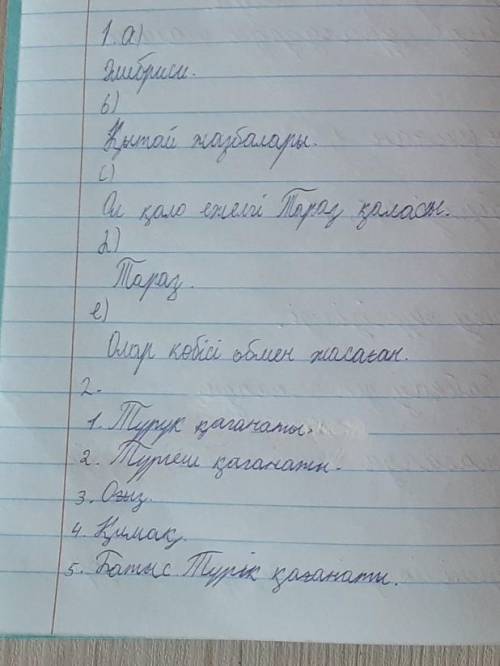 1. a)
Элибриси.
b)
Қытай жазбалары.
c)
Ол қала ежелгі Тараз қаласы.
d)
Тараз.
e)
Олар көбісі обмен жасаған.
2.
1. Турук қаганаты.
2. Тургеш қаганаты.
3. Оғыз.
4. Қимақ.
5. Батыс Турік қағанаты.